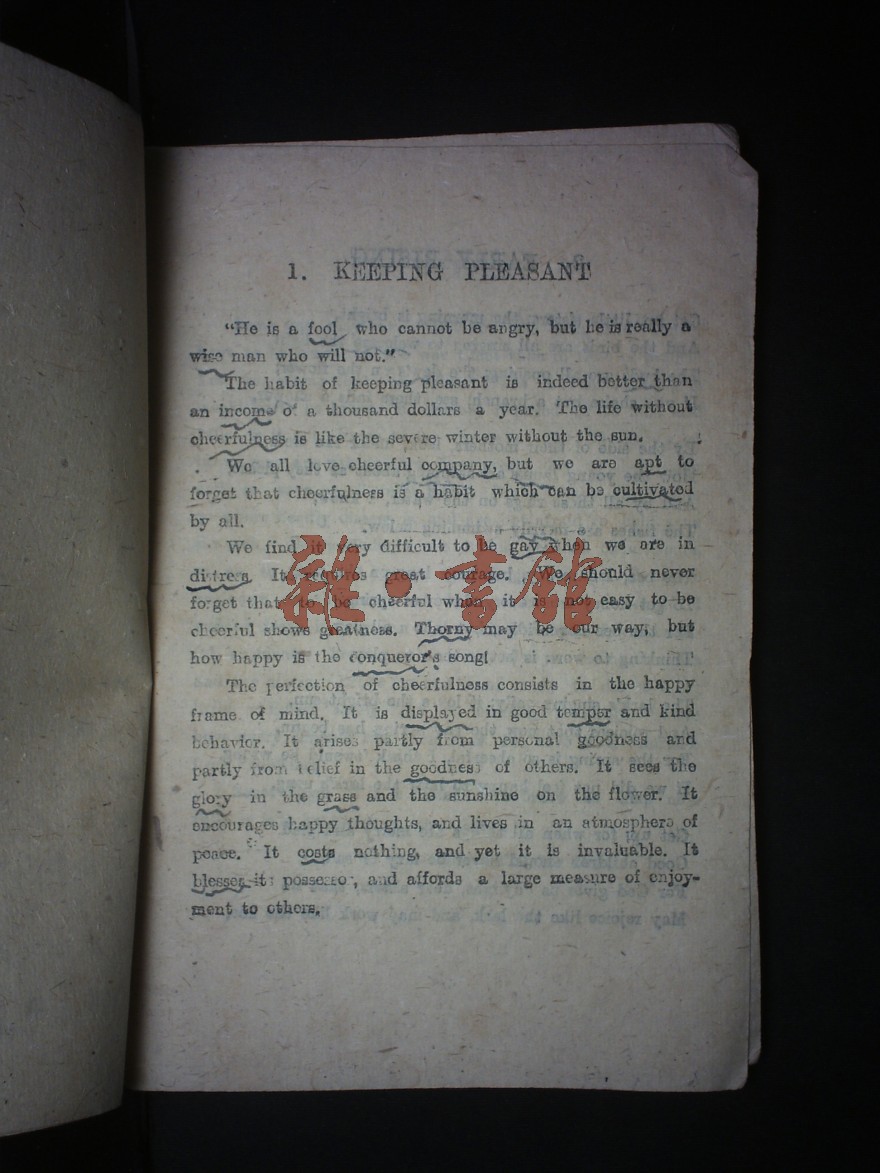 1. KEEPING PLEASANT
"He is a fool who cannot be angry, but he is really a
wise man who will not."
The habit of keeping pleasant is indeed better than
an income of a thousand dollars a year. The life without
cheerfulness is like the severe winter without the sun.
We all love cheerful company, but we are apt to
forget that cheerfulness is a habit which can be cultivated
by all.
We find it very difficult to be gay when we are in
distress. It requires great courage. We should never
forget that to be cheerful when it is not easy to be
cheerful shows greatness. Thorny may be our way, but
how happy is the conqueror's song!
The perfection of cheerfulness consists in the happy
frame of mind. It is displayed in good temper and kind
behavior. It arises partly from personal goodness and
partly from belief in the goodness of others. It sees the
glory in the grass and the sunshine on the flower. It
encourages happy thoughts, and lives in an atmosphere of
peace. It costs nothing, and yet it is invaluable. It
blesses its possessor, and affords a large measure of enjoy-
ment to others.
雜·書館